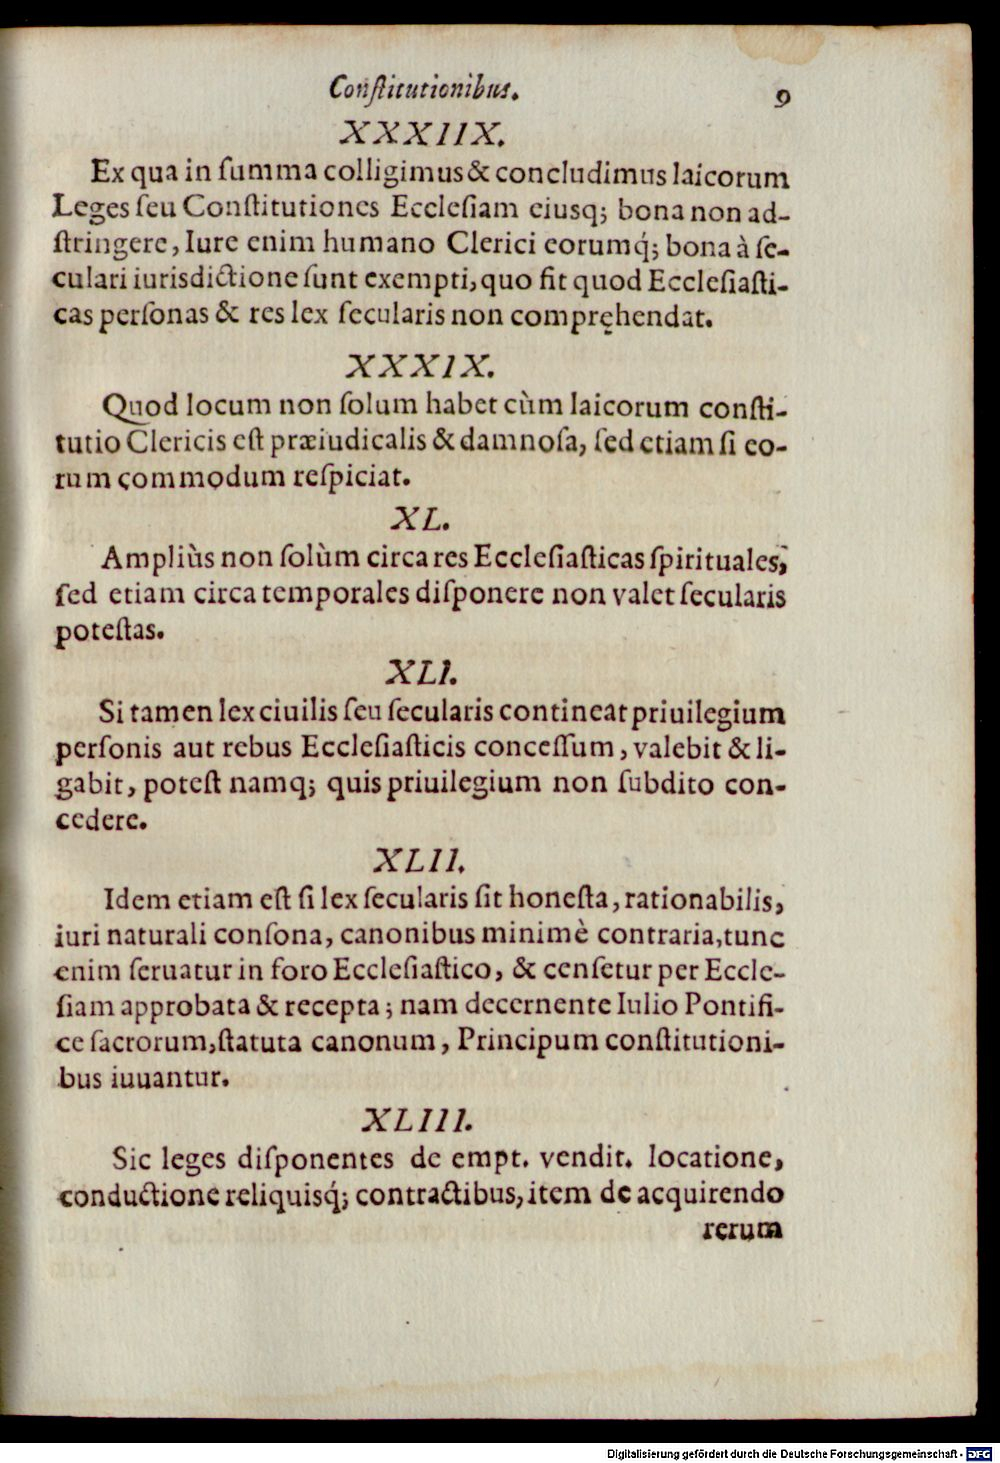 Conſtitutionibus. 9
XXXIIX.
Ex qua in ſumma colligimus & concludimus laicorum
Leges ſeu Conſtitutiones Eccleſiam eiusq; bona non ad-
ſtringere, Iure enim humano Clerici eorumq́; bona à ſe-
culari iurisdictione ſunt exempti, quo fit quod Eccleſiaſti-
cas perſonas & res lex ſecularis non compręhendat.
XXXIX.
Quod locum non ſolum habet cùm laicorum conſti-
tutio Clericis eſt præiudicalis & damnoſa, ſed etiam ſi eo-
rum commodum reſpiciat.
XL.
Ampliùs non ſolùm circa res Eccleſiaſticas ſpirituales,
ſed etiam circa temporales diſponere non valet ſecularis
poteſtas.
XLI.
Si tamen lex ciuilis ſeu ſecularis contineat priuilegium
perſonis aut rebus Eccleſiaſticis conceſſum, valebit & li-
gabit, poteſt namq; quis priuilegium non ſubdito con-
cedere.
XLII.
Idem etiam eſt ſi lex ſecularis ſit honeſta, rationabilis,
iuri naturali conſona, canonibus minimè contraria, tunc
enim ſeruatur in foro Eccleſiaſtico, & cenſetur per Eccle-
ſiam approbata & recepta; nam decernente Iulio Pontifi-
ce ſacrorum, ſtatuta canonum, Principum conſtitutioni-
bus iuuantur.
XLIII.
Sic leges diſponentes de empt. vendit. locatione,
conductione reliquisq́; contractibus, item de acquirendo
rerum
Digitalisierung gefördert durch die Deutsche Forschungsgemeinschaft - DFG